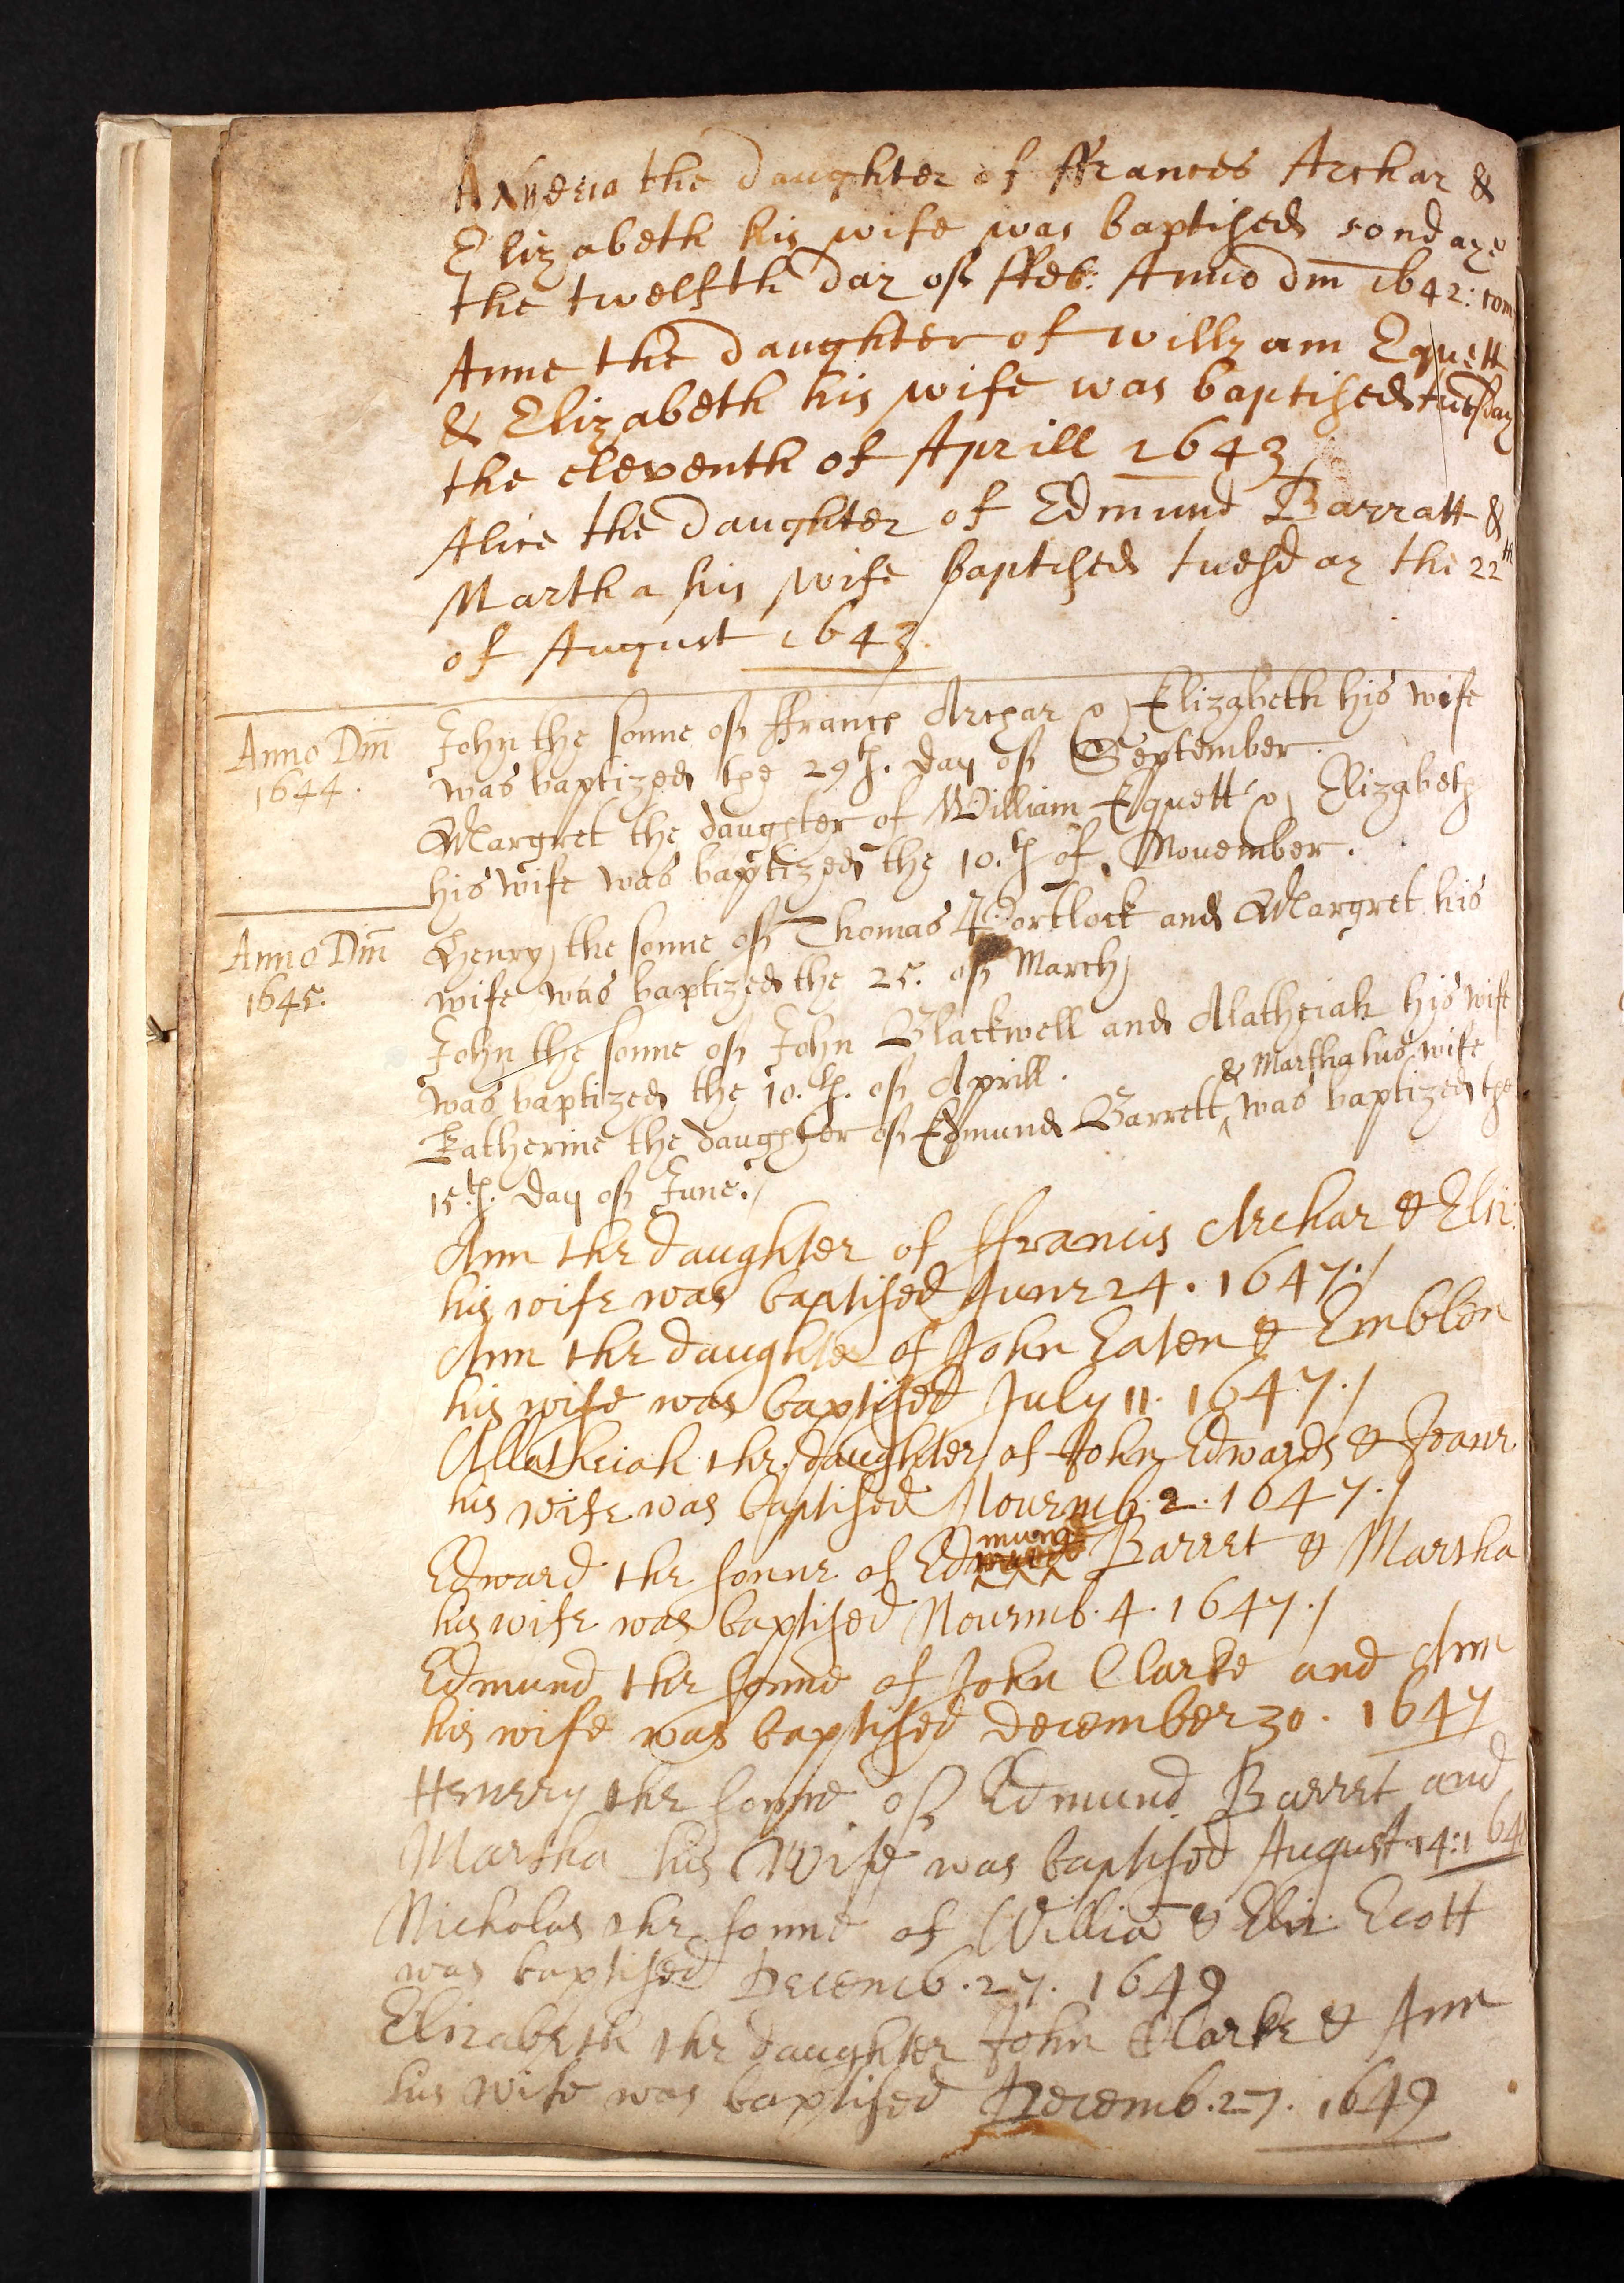 the daughter of ffrances Archar &
Elizabeth his wife was baptised sondaye
the twelfth day of ffeb: Anno dm 1642:
Anne the daughter of Willyam Equett
& Elizabeth his wife was baptised tuesday
the eleventh of Aprill 1643
Alice the daughter of Edmund Barratt &
Martha his wife baptised tuesday the 22th
of August 1643.
John the sonne of ffrancs Archar & Elizabeth his wife
Anno Dm̄
was baptized the 29th. day of September.
1644.
Margret the daughter of William Equett & Elizabeth
his wife was baptized the 10.th of November.
Henry the sonne of Thomas Portlock and Margret his
Anno Dm̄
wife was baptized the 25. of March
1645.
John the sonne of John Blackwell and Alatheiah his wife
was baptized the 10.th. of Aprill.
& Martha his wife
Katherine the daughter of Edmund Barrett ‸ was baptized the
15.th. day of June./
Ann the daughter of ffrancis Archar & Eliz:
his wife was baptised June 24. 1647./
Ann the daughter of John Eaten & Emblen
his wife was baptised July 11. 1647./
Allatheiah the daughter of John Edwards & Joane
his wife was baptised Nouemb. 2. 1647./
Edward the sonne of Edmund Barret & Martha
his wife was baptised Nouemb. 4. 1647./
Edmund the sonne of John Clarke and Ann
his wife was baptised December 30. 1647
Henery the sonne of Edmund Barret and
Martha his Wife was baptised August 14:
Nicholas the sonne of Williā & Eliz: Ecott
was baptised Decemb. 27. 1649
Elizabeth the daughter John Clarke & Ann
his wife was baptised Decemb. 27. 1649